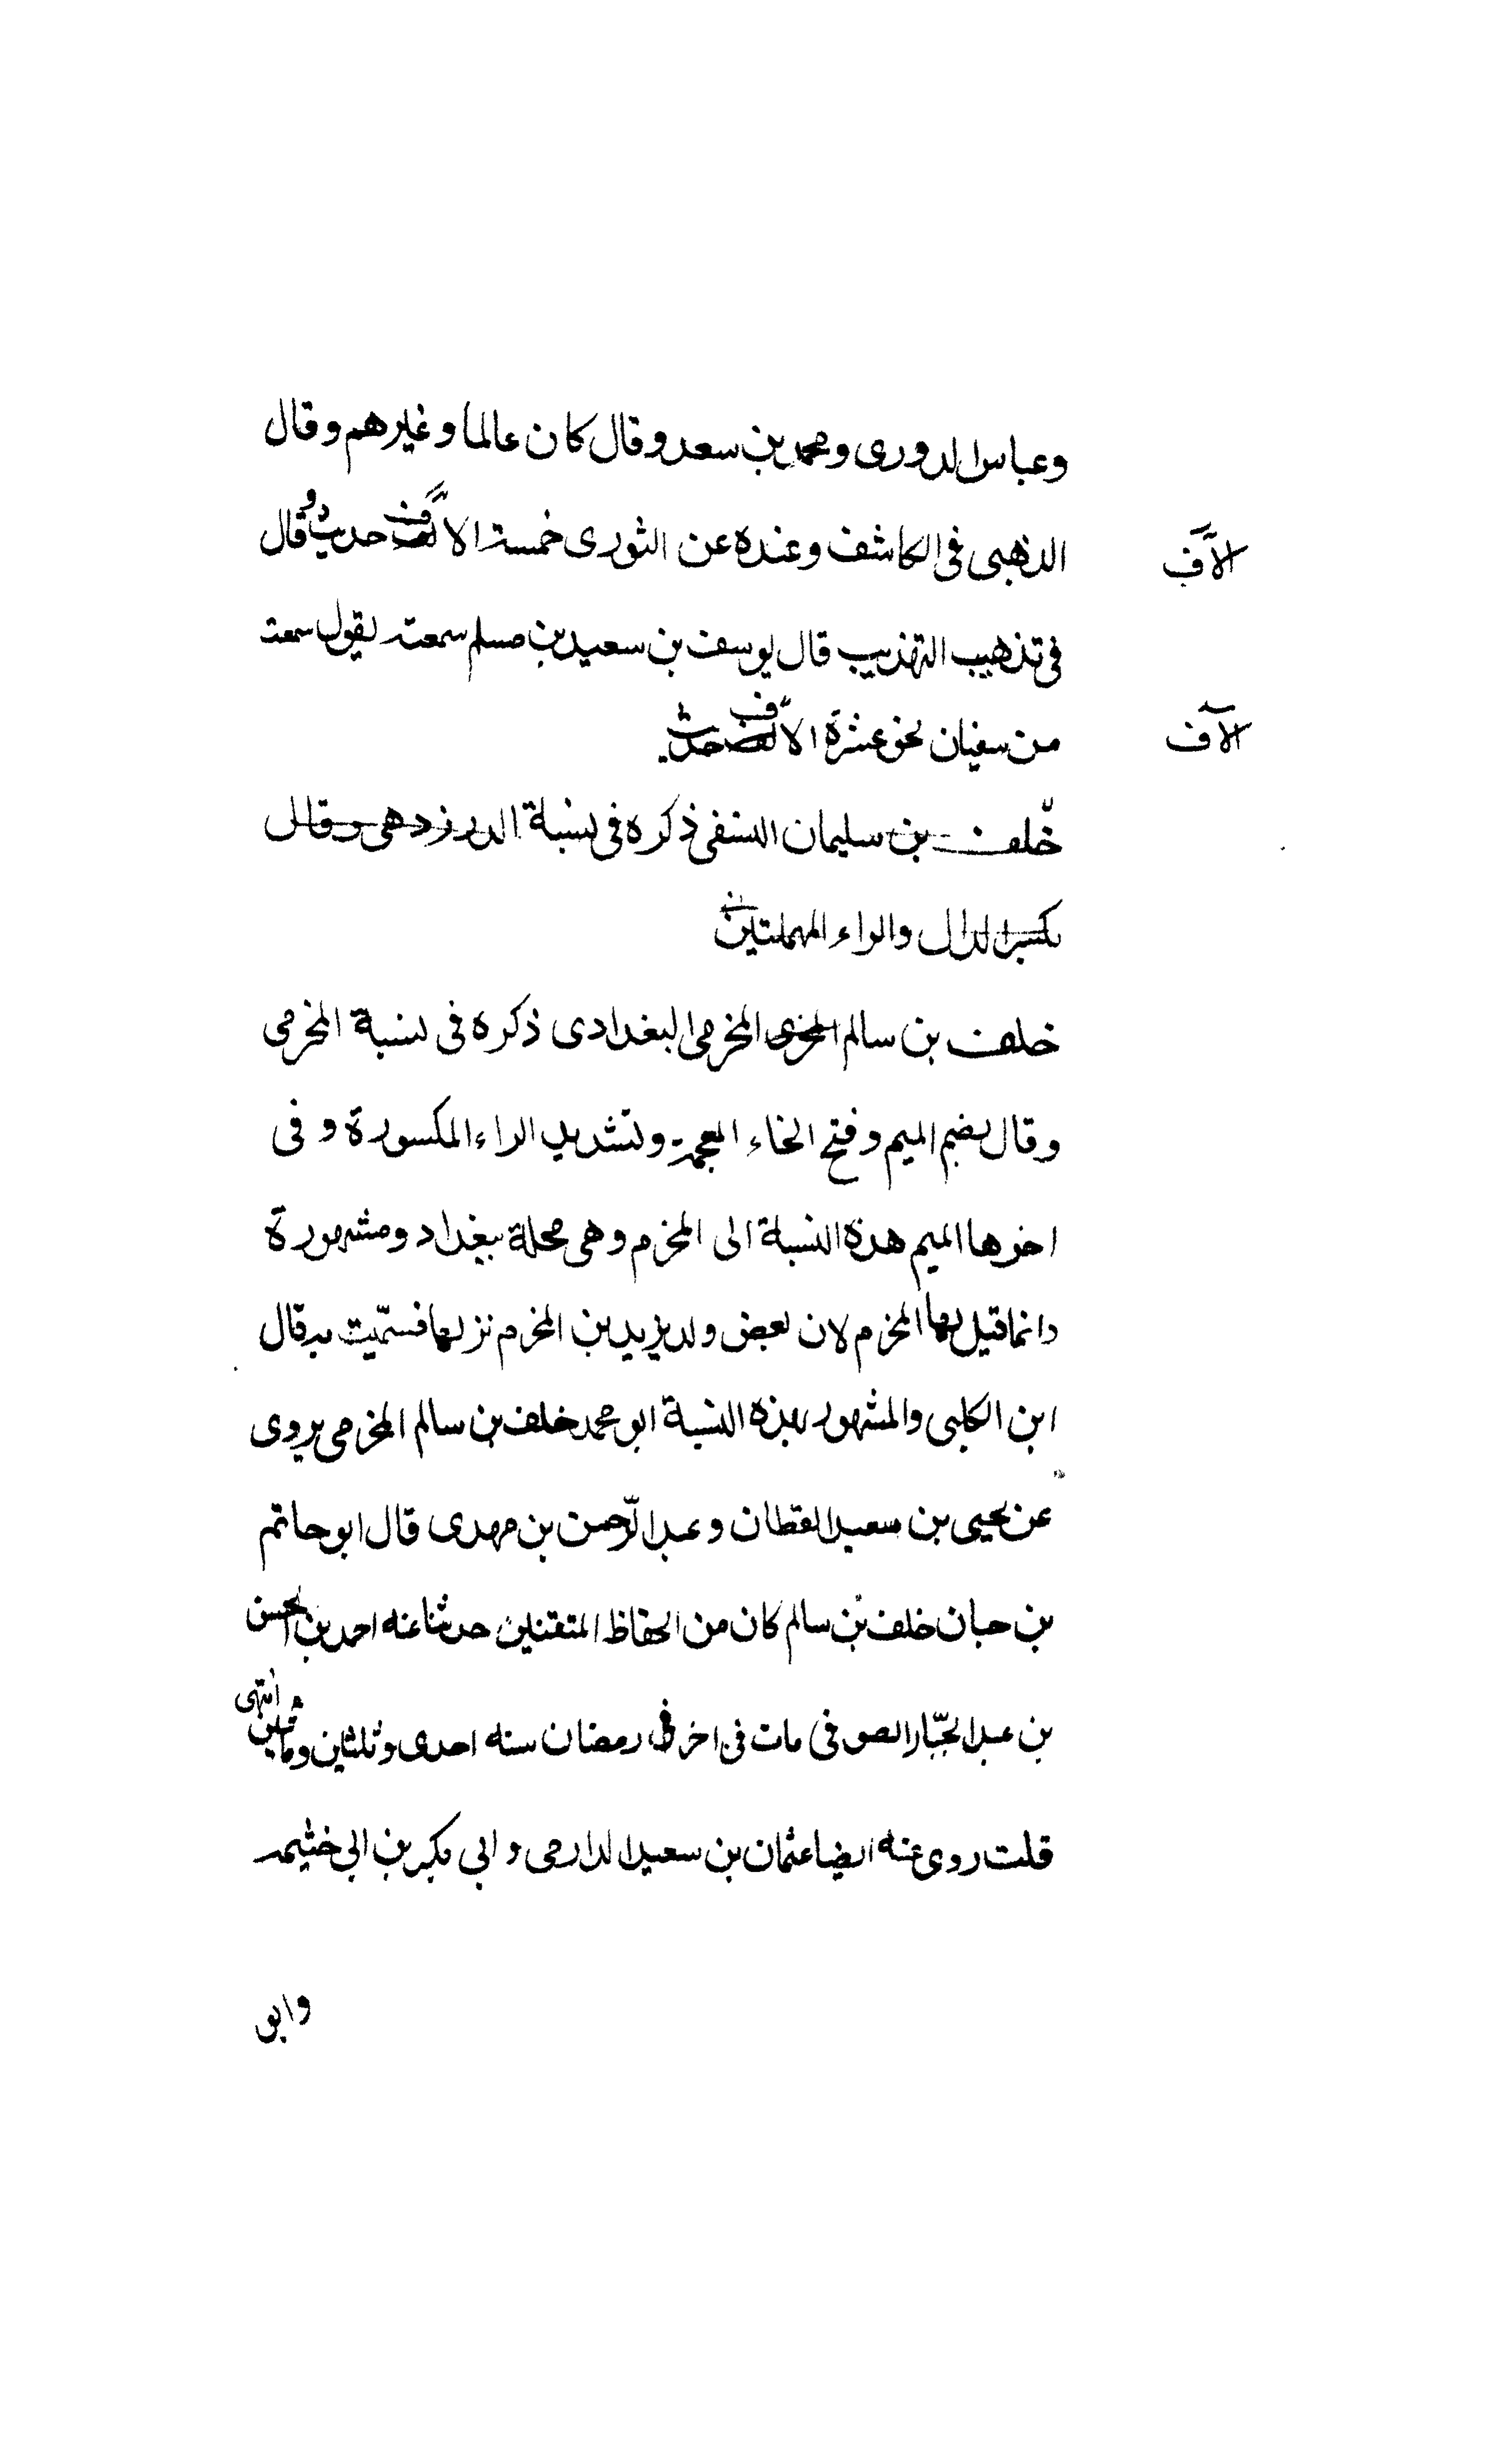 وعباس الدوري ومحمد بن سعد وقال كان عالما وغيرهم وقال
الذهبي في الكاشف وعنده عن الثوري خمسة الآف حديث وقال
الآف
في تذهيب التهذيب قال يوسف بن سعيد بن مسلم سمعته يقول سمعت
من سفيان نحو عشرة الآف حديث
الآف
خلف بن سليمان النسفي ذكره في نسبة الدرزدهي وقال
بكسر الدال والراء المهملتين
خلف بن سالم المخرمي المخرمي البغدادي ذكره في نسبة المخرمي
وقال بضم الميم وفتح الخاء المعجمة وتشديد الراء المكسورة وفي
اخرها الميم هذه النسبة الى المخرم وهي محلة ببغداد ومشهورة
وانما قيل لها المخرم لان بعض ولد يزيد بن المخرم نزلها فسمّيت به قال
ابن الكلبي والمشهور بهذه النسبة ابو محمد خلف بن سالم المخرمي يروى
عن يحيى بن سعيد القطان وعبد الرّحمن بن مهدى قال ابو حاتم
بن حبان خلف بن سالم كان من الحفاظ المتقنين حدثنا عنه احمد بن الحسن
بن عبد الجبّار الصوفي مات في اخر رمضان سنه احدى وثلثين ومأتين انتهى
قلت روى عنه ايضا عثمان بن سعيد الدارمي و ابي بكر بن ابي خثيمه
وابو